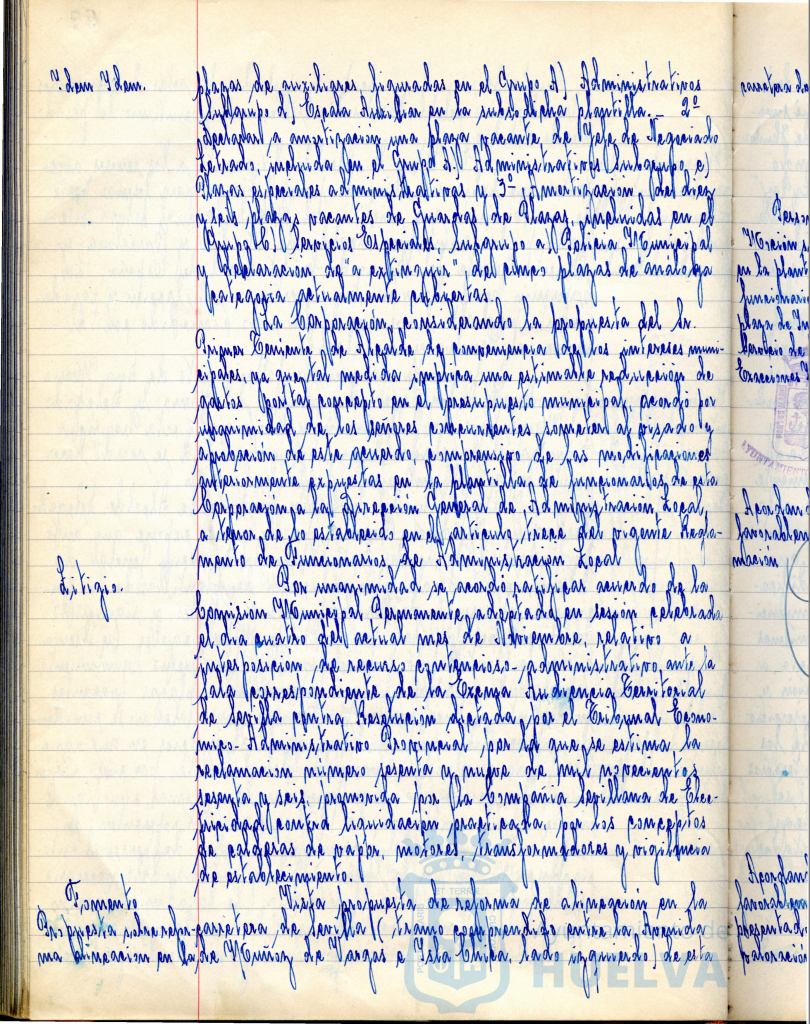 Idem Idem.
plazas de auxiliares, figuradas en el Grupo A) Administrativos
Subgrupo d) Escala Auxiliar en la susodicha plantilla.- 2º
Declarar a amortización una plaza vacante de Jefe de Negociado
Letrado, incluida en el Grupo A) Administrativos (subgrupo c)
Plazas especiales administrativas y 3º Amortización de diez
y seis plazas vacantes de Guardas de Plazas, incluidas en el
Grupo C) Servicios Especiales, Subgrupo a) Policía Municipal
y declaración de "a extinguir" de cinco plazas de análoga
categoría actualmente cubiertas.
La Corporación, considerando la propuesta del Sr.
Primer Teniente de Alcalde de conveniencia de los intereses muni-
cipales, ya que tal medida implica una estimable reducción de
gastos por tal concepto en el presupuesto municipal, acordó por
unanimidad de los señores concurrentes someter al visado y
aprobación de este acuerdo, comprensivo de las modificaciones
anteriormente expuestas en la plantilla de funcionarios de esta
Corporación a la Dirección General de Administración Local,
a tenor de lo establecido en el artículo trece del vigente Regla-
mento de Funcionarios de Administración Local
Litigio.
Por unanimidad se acordó ratificar acuerdo de la
Comisión Municipal Permanente, adoptado en sesión celebrada
el día cuatro del actual mes de Noviembre, relativo a
interposición de recurso contencioso-administrativo, ante la
Sala correspondiente de la Excma Audiencia Territorial
de Sevilla contra Resolución dictada por el Tribunal Econó-
mico-Administrativo Provincial por la que se estima la
reclamación número sesenta y nueve de mil novecientos
sesenta y seis, promovida por la Compañía Sevillana de Elec-
tricidad contra liquidación practicada, por los conceptos
de calderas de vapor, motores, transformadores y vigilancia
de establecimiento.
Fomento
Propuesta sobre refor-
ma alineación en la
Vista propuesta de reforma de alineación en la
carretera de Sevilla (tramo comprendido entre la Avenida
de Muñoz de Vargas e Isla Chica, lado izquierdo) de esta
carretera de
Perso
Moción
en la plant
funcionari
plaza de In
Servicio de
Exacciones
AYUNTAMIEN
Acordan
favorablem
moción
Acordan
favorablem
presentad
valoración
HUELVA